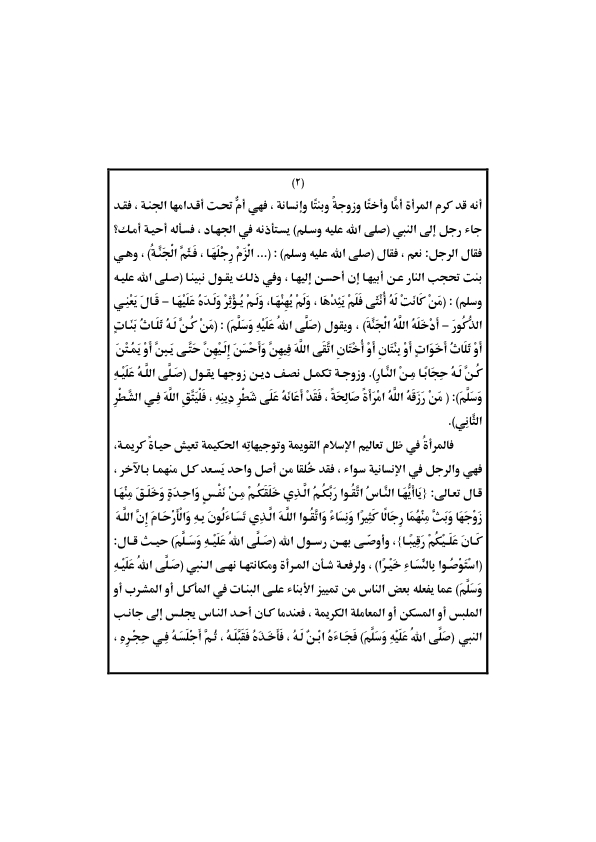 (٢)
أنه قد كرم المرأة أمًّا وأختًا وزوجةً وبنتًا وإنسانة ، فهي أمٌّ تحت أقدامها الجنة ، فقد
جاء رجل إلى النبي (صلى الله عليه وسلم) يستأذنه في الجهاد ، فسأله أحية أمك؟
فقال الرجل: نعم ، فقال (صلى الله عليه وسلم) : (... الْزَمْ رِجْلَهَا ، فَثَمَّ الْجَنَّةُ) ، وهي
بنت تحجب النار عن أبيها إن أحسن إليها ، وفي ذلك يقول نبينا (صلى الله عليه
وسلم) : (مَنْ كَانَتْ لَهُ أُنْثَى فَلَمْ يَئِدْهَا ، وَلَمْ يُهِنْهَا، وَلَمْ يُؤْثِرْ وَلَدَهُ عَلَيْهَا – قَالَ يَعْنِي
الذُّكُورَ – أَدْخَلَهُ اللَّهُ الْجَنَّةَ) ، ويقول (صَلَّى اللهُ عَلَيْهِ وَسَلَّمَ) : (مَنْ كُنَّ لَهُ ثَلَاثُ بَنَاتٍ
أَوْ ثَلَاثُ أَخَوَاتٍ أَوْ بِنْتَانِ أَوْ أُخْتَانِ اتَّقَى اللَّهَ فِيهِنَّ وَأَحْسَنَ إِلَيْهِنَّ حَتَّى يَبِنَّ أَوْ يَمُتْنَ
كُنَّ لَهُ حِجَابًا مِنْ النَّارِ). وزوجة تكمل نصف دين زوجها يقول (صَلَّى اللَّهُ عَلَيْهِ
وَسَلَّمَ): ( مَنْ رَزَقَهُ اللَّهُ امْرَأَةً صَالِحَةً ، فَقَدْ أَعَانَهُ عَلَى شَطْرِ دِينِهِ ، فَلْيَتَّقِ اللَّهَ فِي الشَّطْرِ
الثَّانِي).
فالمرأةُ في ظل تعاليم الإسلام القويمة وتوجيهاتِه الحكيمة تعيش حياةً كريمة،
فهي والرجل في الإنسانية سواء ، فقد خُلقا من أصل واحد يَسعد كل منهما بالآخر ،
قال تعالى: {يَاأَيُّهَا النَّاسُ اتَّقُوا رَبَّكُمُ الَّذِي خَلَقَكُمْ مِنْ نَفْسٍ وَاحِدَةٍ وَخَلَقَ مِنْهَا
زَوْجَهَا وَبَثَّ مِنْهُمَا رِجَالًا كَثِيرًا وَنِسَاءً وَاتَّقُوا اللَّهَ الَّذِي تَسَاءَلُونَ بِهِ وَالْأَرْحَامَ إِنَّ اللَّهَ
كَانَ عَلَيْكُمْ رَقِيبًا} ، وأوصّى بهن رسول الله (صَلَّى اللهُ عَلَيْهِ وَسَلَّمَ) حيث قال:
(اسْتَوْصُوا بِالنِّسَاءِ خَيْرًا) ، ولرفعة شأن المرأة ومكانتها نهى النبي (صَلَّى اللهُ عَلَيْهِ
وَسَلَّمَ) عما يفعله بعض الناس من تمييز الأبناء على البنات في المأكل أو المشرب أو
الملبس أو المسكن أو المعاملة الكريمة ، فعندما كان أحد الناس يجلس إلى جانب
النبي (صَلَّى اللهُ عَلَيْهِ وَسَلَّمَ) فَجَاءَهُ ابْنٌ لَهُ ، فَأَخَذَهُ فَقَبَّلَهُ ، ثُمَّ أَجْلَسَهُ فِي حِجْرِهِ ،